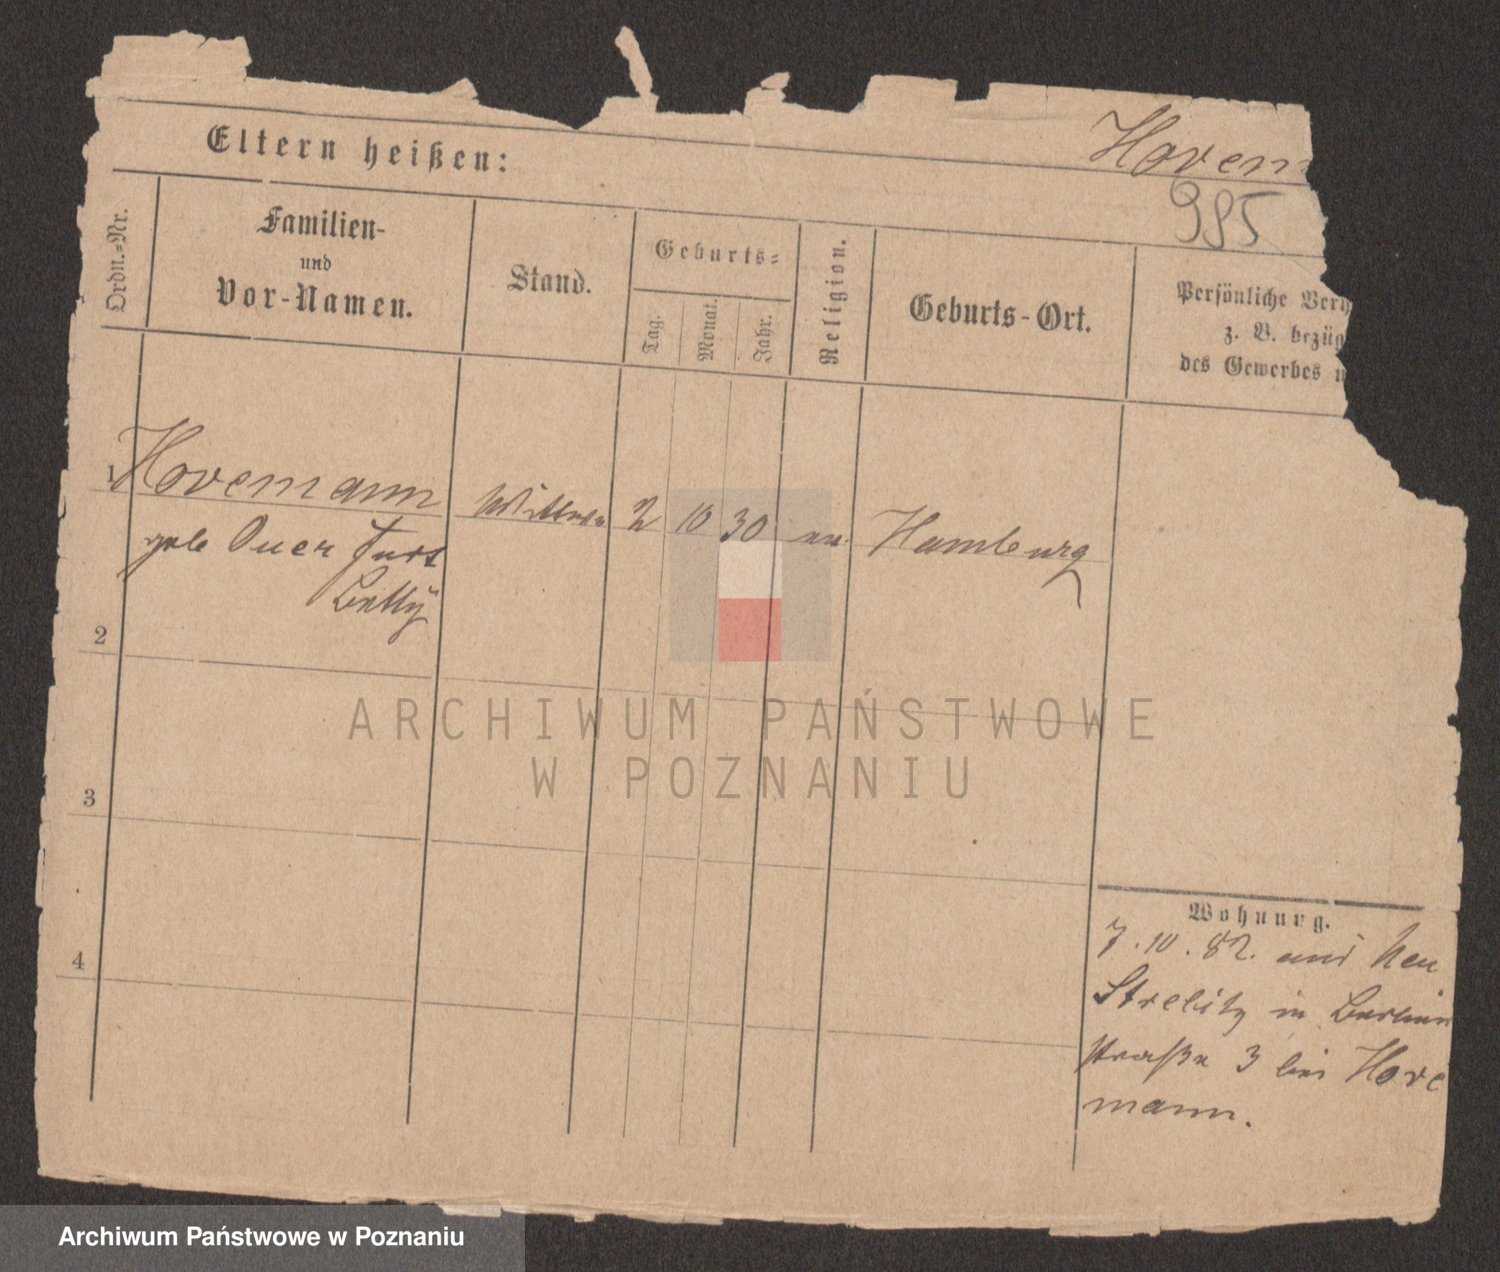 Hovem
Eltern heißen:
985
Ordn.-Nr.
Familien-
und
Vor-Namen.
Stand.
Geburts-
Tag.
Monat.
Jahr.
Religion.
Geburts-Ort.
Persönliche Ver
z. B. bezüg
des Gewerbes u
1 Hovemann Wittwe 2 10 30 ev. Hamburg
geb
Betty
2
3
4
Wohnung.
7.10.82. aus Neu
Strelitz in Berliner
straße 3 bei Hove
mann.
ARCHIWUM PAŃSTWOWE
W POZNANIU
Archiwum Państwowe w Poznaniu